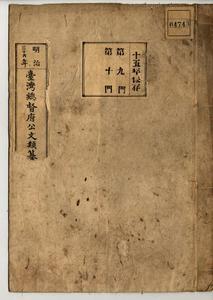 明治
三十六年
臺灣總督府公文類纂
十五年保存
第九門
第十門